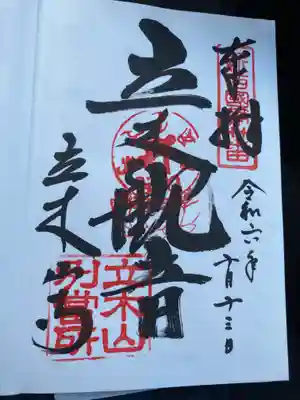 奉拝
令和六年
十月十三日
立木観音
立木山寺
立木山
別當所